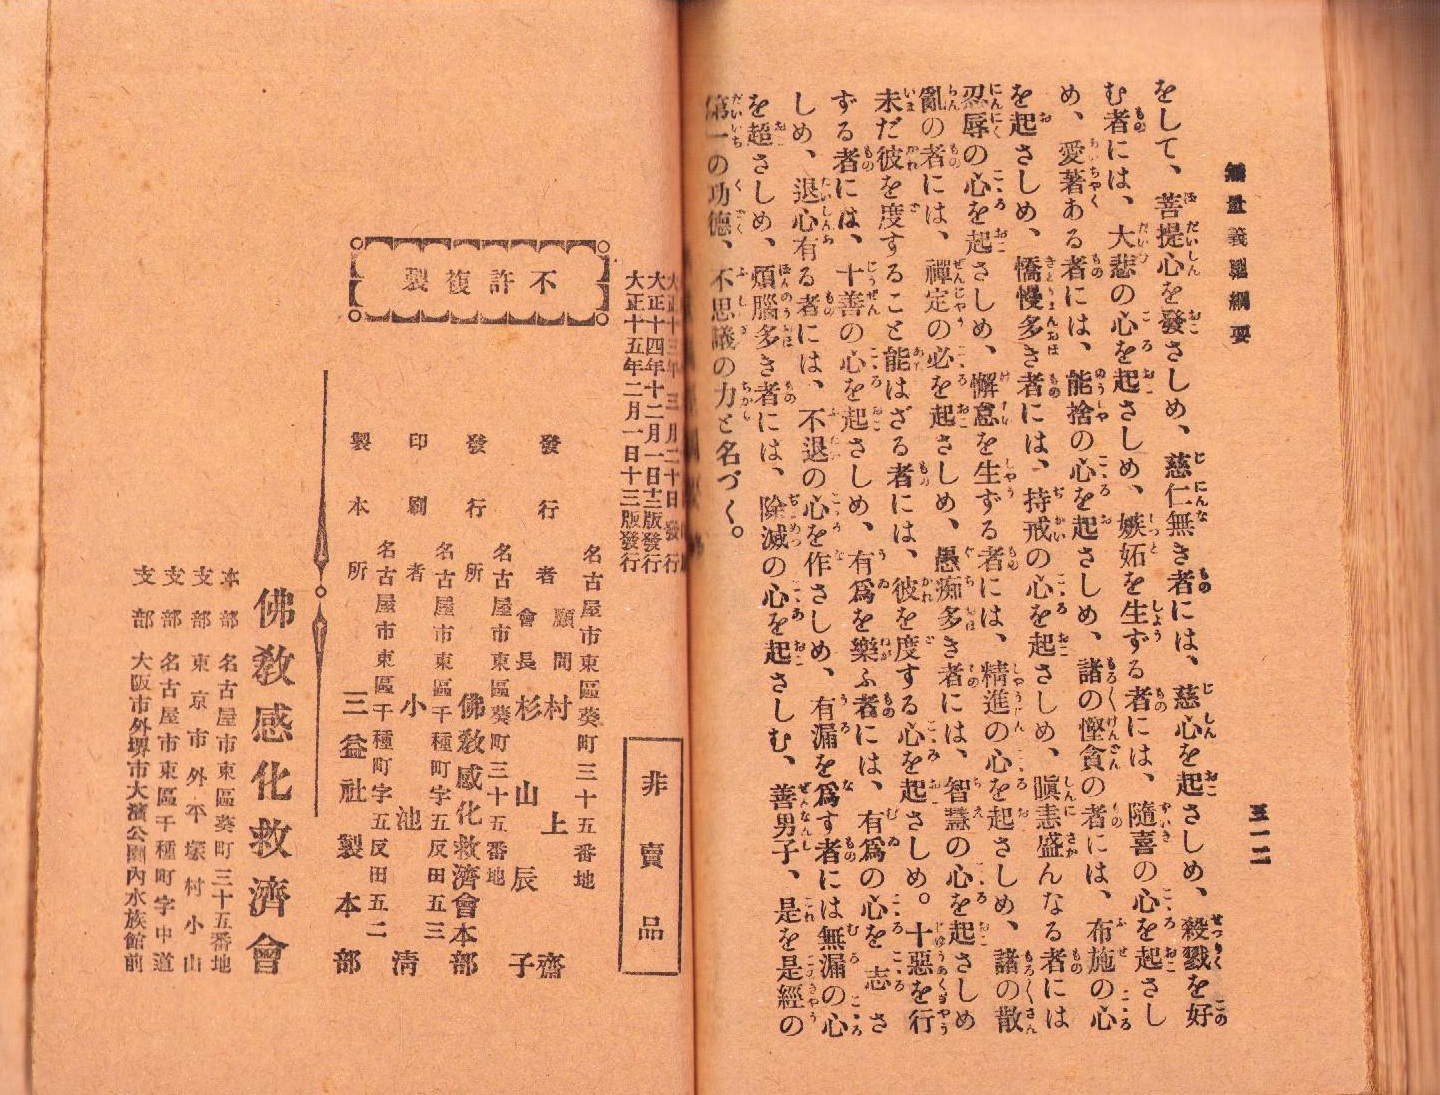 無量義經綱要
三一二
をして、菩提心を發さしめ、慈仁無き者には、慈心を起さしめ、殺戮を好
む者には、大悲の心を起さしめ、嫉妬を生ずる者には、隨喜の心を起さし
め、愛著ある者には、能捨の心を起さしめ、諸の慳貪の者には、布施の心
を起さしめ、憍慢多き者には、持戒の心を起さしめ、瞋恚盛んなる者には
忍辱の心を起さしめ、懈怠を生ずる者には、精進の心を起さしめ、諸の散
亂の者には、禪定の必を起さしめ、愚痴多き者には、智慧の心を起さしめ
未だ彼を度すること能はざる者には、彼を度する心を起さしめ。十惡を行
ずる者には、十善の心を起さしめ、有爲を樂ふ者には、有爲の心を志さ
しめ、退心有る者には、不退の心を作さしめ、有漏を爲す者には無漏の心
を超さしめ、煩腦多き者には、除滅の心を起さしむ、善男子、是を是經の
第一の功德、不思議の力と名づく。
大正十三年三月二十日發行
大正十四年十二月一日十二版發行
大正十五年二月一日十三版發行
非賣品
不許複製
名古屋市東區葵町三十五番地
發行者
顧問 村上辰齋
會長 杉山辰子
名古屋市東區葵町三十五番地
發行所 佛敎感化救濟會本部
名古屋市東區千種町字五反田五三
印刷者 小池淸
名古屋市東區千種町字五反田五二
製本所 三益社製本部
佛敎感化救濟會
本部 名古屋市東區葵町三十五番地
支部 東京市外平塚村小山
支部 名古屋市東區千種町字中道
支部 大阪市外堺市大濱公園內水族館前